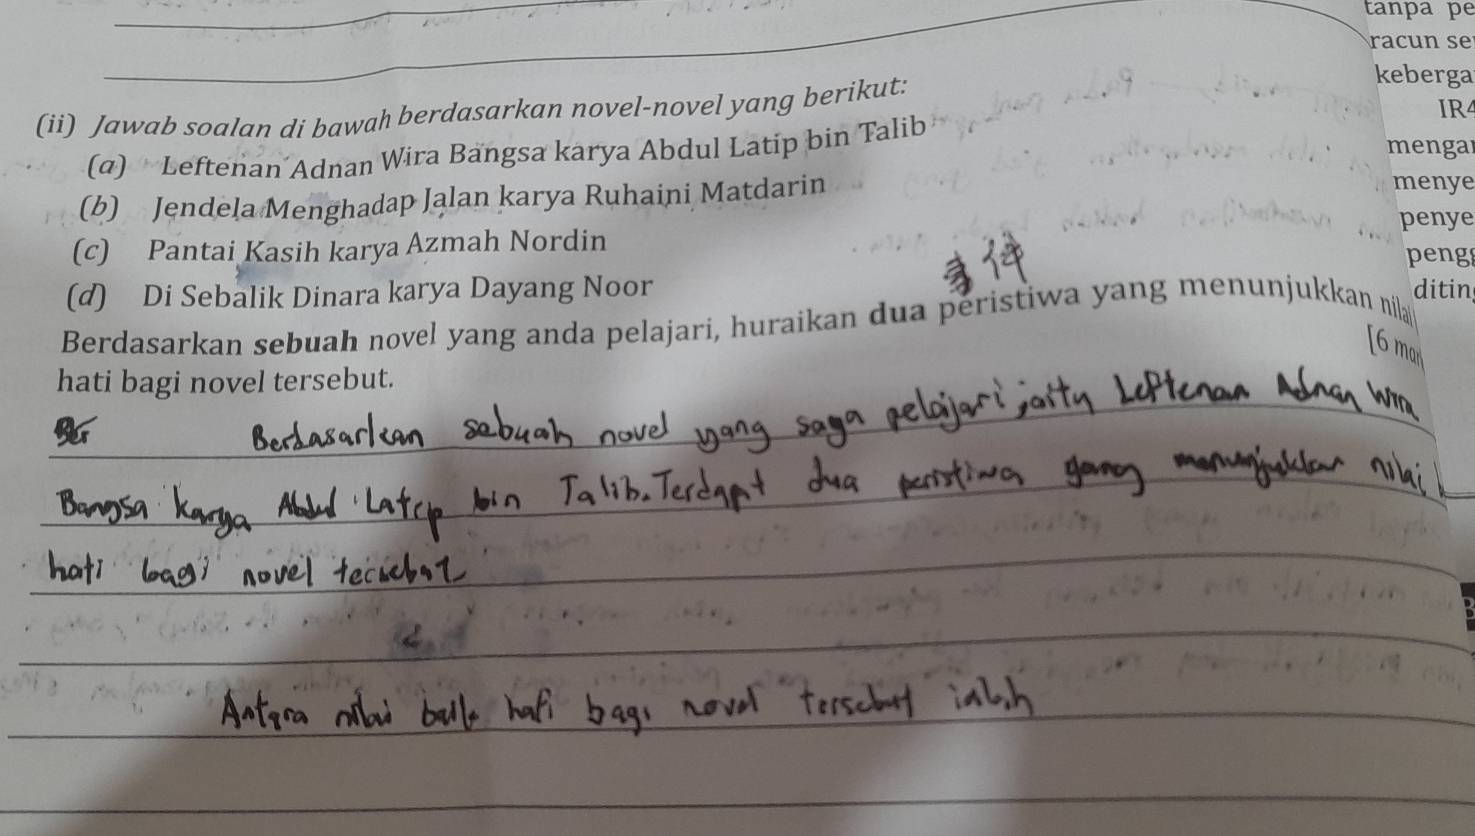 tanpa pe
racun se
keberga
IR4
(ii) Jawab soalan di bawah berdasarkan novel-novel yang berikut:
mengar
(a) Leftenan Adnan Wira Bangsa karya Abdul Latip bin Talib
menye
(b) Jendela Menghadap Jalan karya Ruhaini Matdarin
penye
(c) Pantai Kasih karya Azmah Nordin
peng
事件
(d) Di Sebalik Dinara karya Dayang Noor
diting
Berdasarkan sebuah novel yang anda pelajari, huraikan dua peristiwa yang menunjukkan nilai
[6 mar
hati bagi novel tersebut.
Berdasarkan sebuah novel yang saya pelajari iaitu Leftenan Adnan Wira
Bangsa karya Abdul Latip bin Talib. Terdapat dua peristiwa yang menunjukkan nilai
hati bagi novel tersebut
Antara nilai baik hati bagi novel tersebut ialah